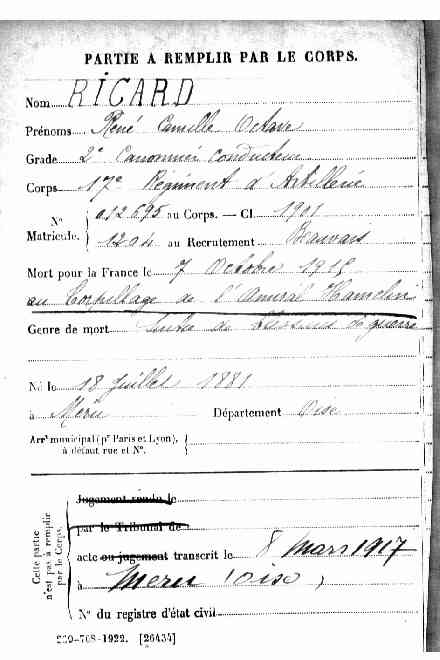 PARTIE A REMPLIR PAR LE CORPS.
Nom RICARD
Prénoms René Camille Octave
Grade 2e Canonnier Conducteur
Corps 17e Régiment d'Artillerie
No Matricule. 012695 au Corps. — Cl. 1901
1204 au Recrutement Beauvais
Mort pour la France le 7 Octobre 1915
au Torpillage de l'Amiral Hamelin
Genre de mort Suites de blessures de guerre
Né le 18 Juillet 1881
à Meru Département Oise
Arrt municipal (pr Paris et Lyon),
à défaut rue et No.
Cette partie
n'est pas à remplir
par le Corps.
Jugement rendu le
par le Tribunal de
acte ou jugement transcrit le 8 Mars 1917
à Meru (Oise)
No du registre d'état civil
-708-1922. [26434]